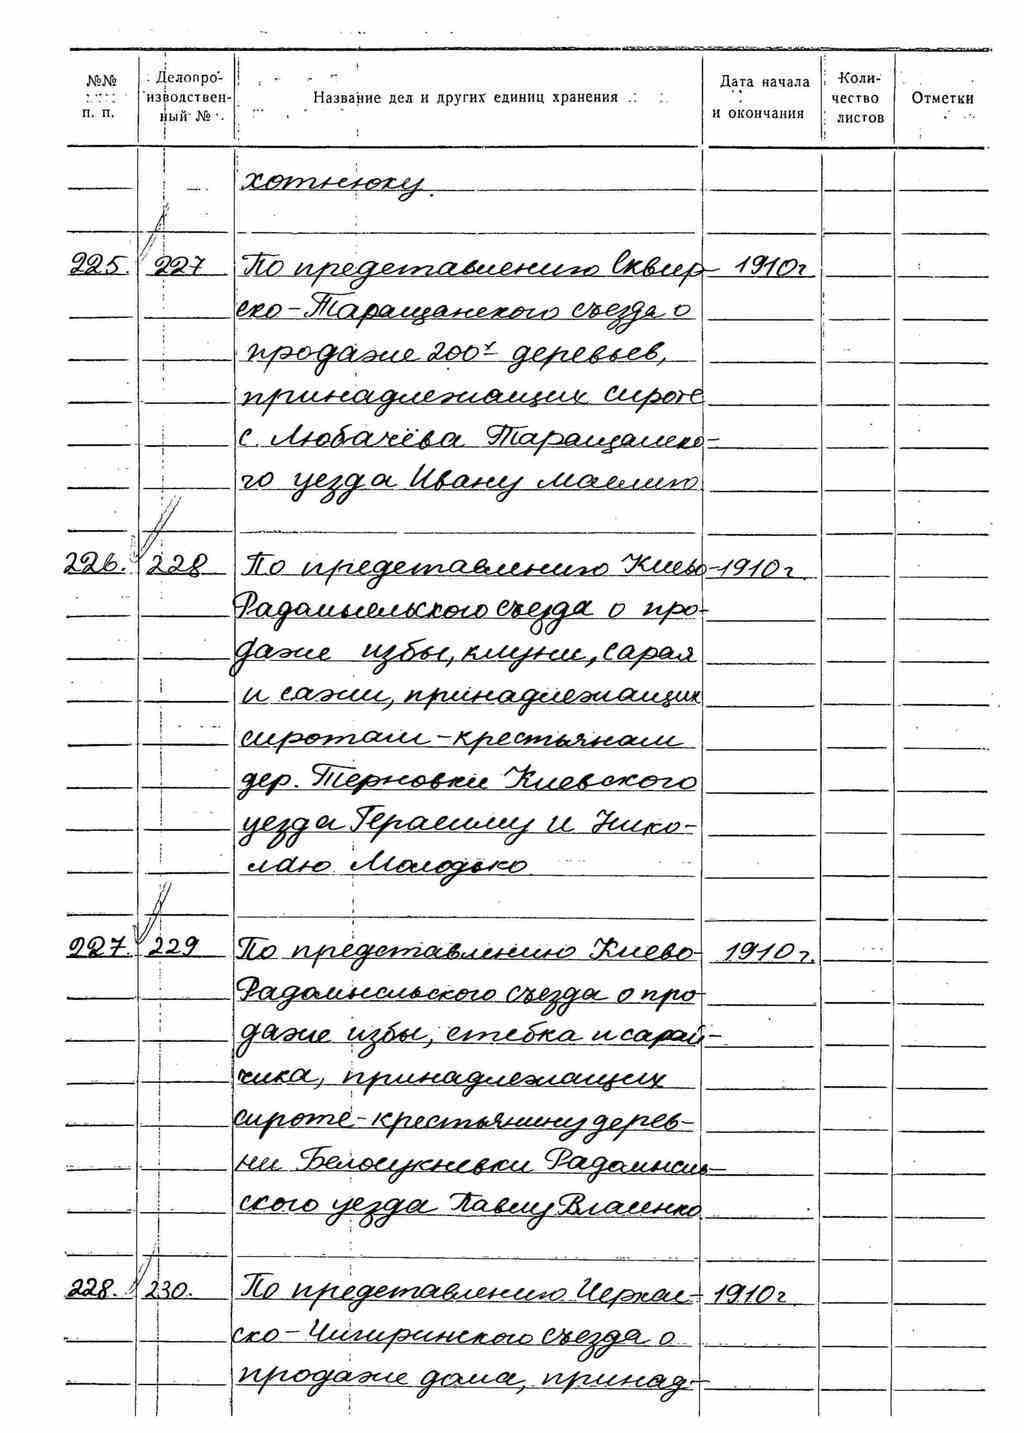 №№ п. п. Делопроизводственный № Название дел и других единиц хранения Дата начала и окончания Коли-чество листов Отметки
хотнюку.
225. 227 По представлению Сквир- 1910г
ско-Таращанского съезда о
продаже 200х деревьев,
принадлежащих сироте
с. Любачёва Таращанско-
го уезда Ивану Маслию
226. 228 По представлению Киево- 1910г.
Радомысльского съезда о про-
даже избы, клуни, сарая
и сажи, принадлежащих
сиротам-крестьянам
дер. Терновки Киевского
уезда Герасиму и Нико-
лаю Молодько
227. 229 По представлению Киево- 1910г.
Радомысльского съезда о про
даже избы, стебка и сарай-
чика, принадлежащих
сироте-крестьянину дерев-
ни Белосукневки Радомысль-
ского уезда Павлу Власенко
228. 230. По представлению Черкас- 1910г.
ско-Чигиринского съезда о
продаже дома, принад-